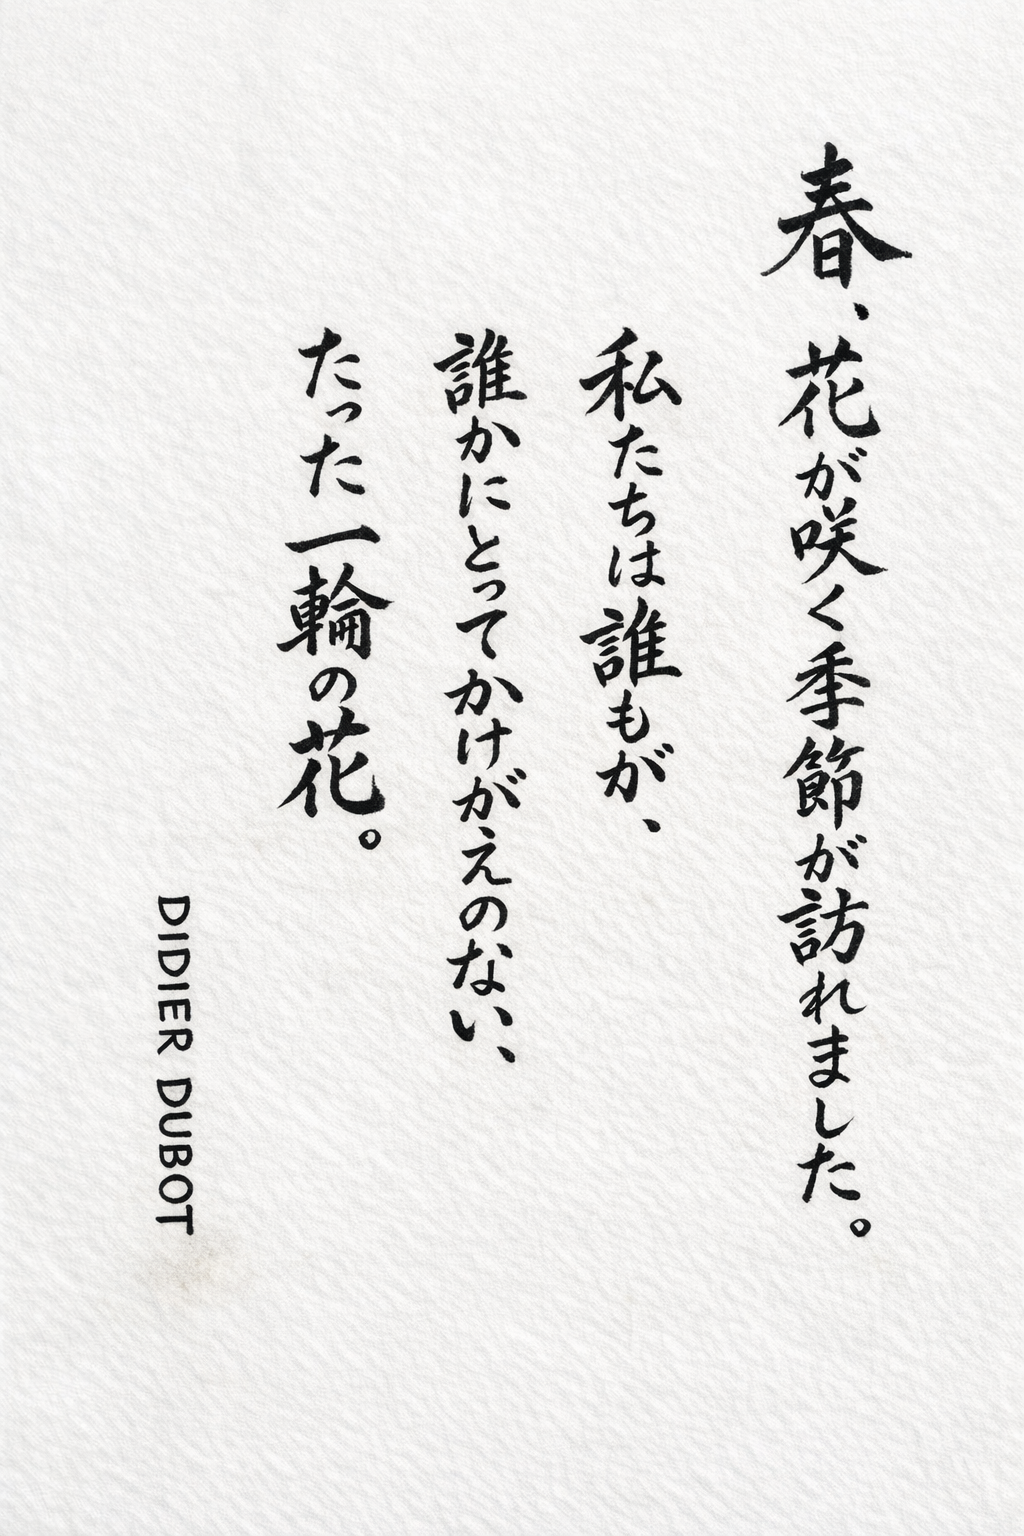 春、花が咲く季節が訪れました。
私たちは誰もが、
誰かにとってかけがえのない、
たった一輪の花。
DIDIER DUBOT